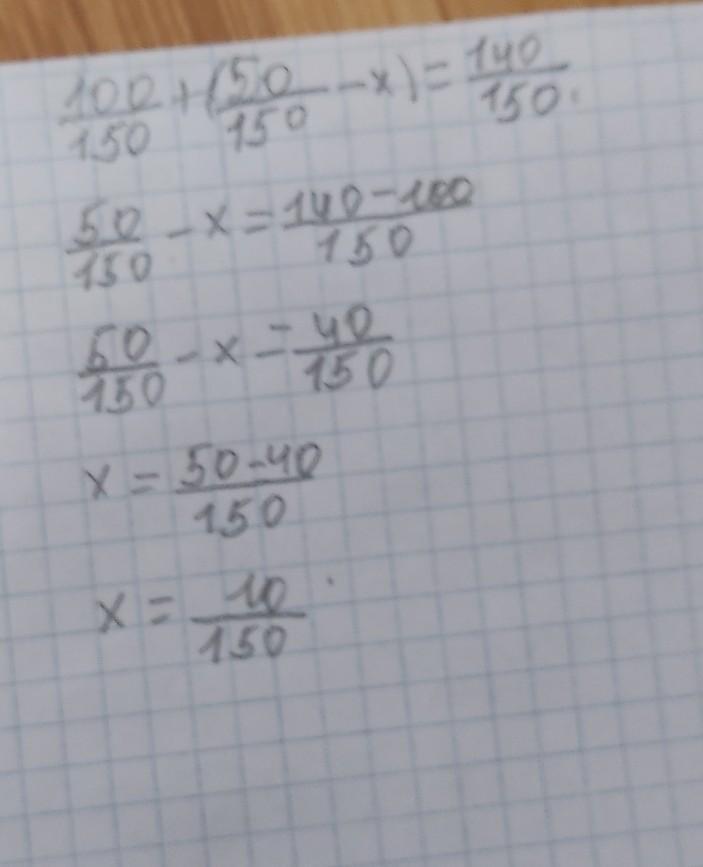 100/150 + (50/150 - x) = 140/150.
50/150 - x = 140-100/150
50/150 - x = 40/150
x = 50-40/150
x = 10/150